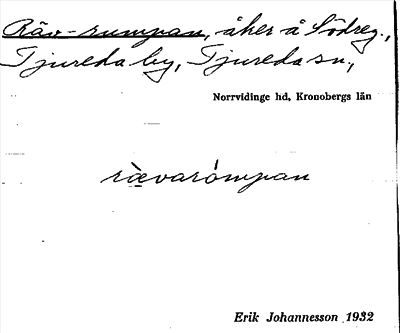 Räv-rumpan, åker å Södreg.,
Tjureda by, Tjureda sn.,
Norrvidinge hd, Kronobergs län
rævarómpan
Erik Johannesson 1932